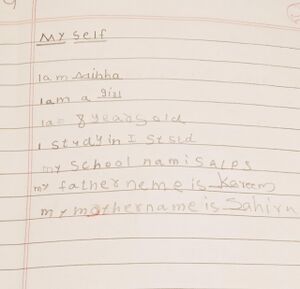 My self
I am Mibha
I am a girl
Ia= 8 years old
I study in I st std
my school nam is ALPS
my father neme is Kareem
my mother name is Sahira